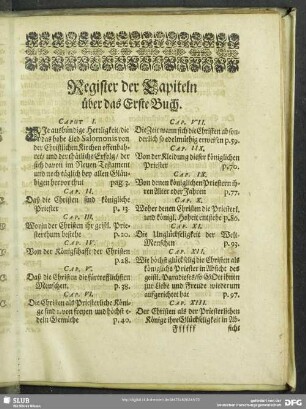 Register der Capiteln
über das Erste Buch.
CAPUT I.
Die ausbündige Herrligkeit, die
das hohe Lied Salomonis von
der Christlichen Kirchen offenbah-
ret, und der thätliche Erfolg, der
sich davon im Neuen Testament
und noch täglich bey allen Gläu-
bigen hervor thut pag. 3.
CAP. II.
Daß die Christen sind Königliche
Priester p. 13.
CAP. III.
Worin der Christen ihr geistl. Prie-
sterthum bestehe p. 20.
CAP. IV.
Von der Königschafft der Christen
p. 28.
CAP. V.
Daß die Christen die fürtrefflichsten
Menschen. p. 38.
CAP. VI.
Die Christen als Priesterliche Köni-
ge sind von freyen und höchst e-
deln Gemüthe p. 40.
CAP. VII.
Die Zeit wann sich die Christen ab son-
derlich so edelmüthig erweisen p. 59.
CAP. IIX.
Von der Kleidung dieser königlichen
Priester p. 70.
CAP. IX.
Von denen königlichen Priestern ih-
ren Alter oder Jahren p. 77.
CAP. X.
Woher denen Christen die Priesterl.
und königl. Hoheit entstehe p. 80.
CAP. XI.
Die Unglückseligkeit der Welt-
Menschen p. 93.
CAP. XII.
Wie höchst glückselig die Christen als
königliche Priester in Absicht des
geistl. Paradieses, so GOtt ihnen
zur Liebe und Freude wiederum
auffgerichtet hat p. 97.
CAP. XIII.
Der Christen als der Priesterlichen
Könige ihre Glückseligkeit in Ab-
sichs
SLUB